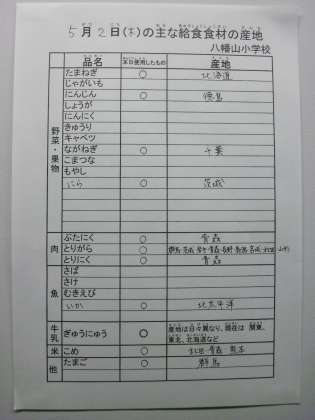 5月2日(木)の主な給食食材の産地
八幡山小学校
品名 本日使用したもの 産地
野菜・果物
たまねぎ ○ 北海道
じゃがいも
にんじん ○ 徳島
しょうが
にんにく
きゅうり
キャベツ
ながねぎ ○ 千葉
こまつな
もやし
にら ○ 茨城
肉
ぶたにく ○ 青森
とりがら ○
とりにく ○ 青森
魚
さば
さけ
むきえび
いか ○ 北太平洋
牛乳 ぎゅうにゅう ○ 産地は日々異なり、現在は 関東、
東北、北海道など
米 こめ ○ 秋田・青森
他 たまご ○ 群馬